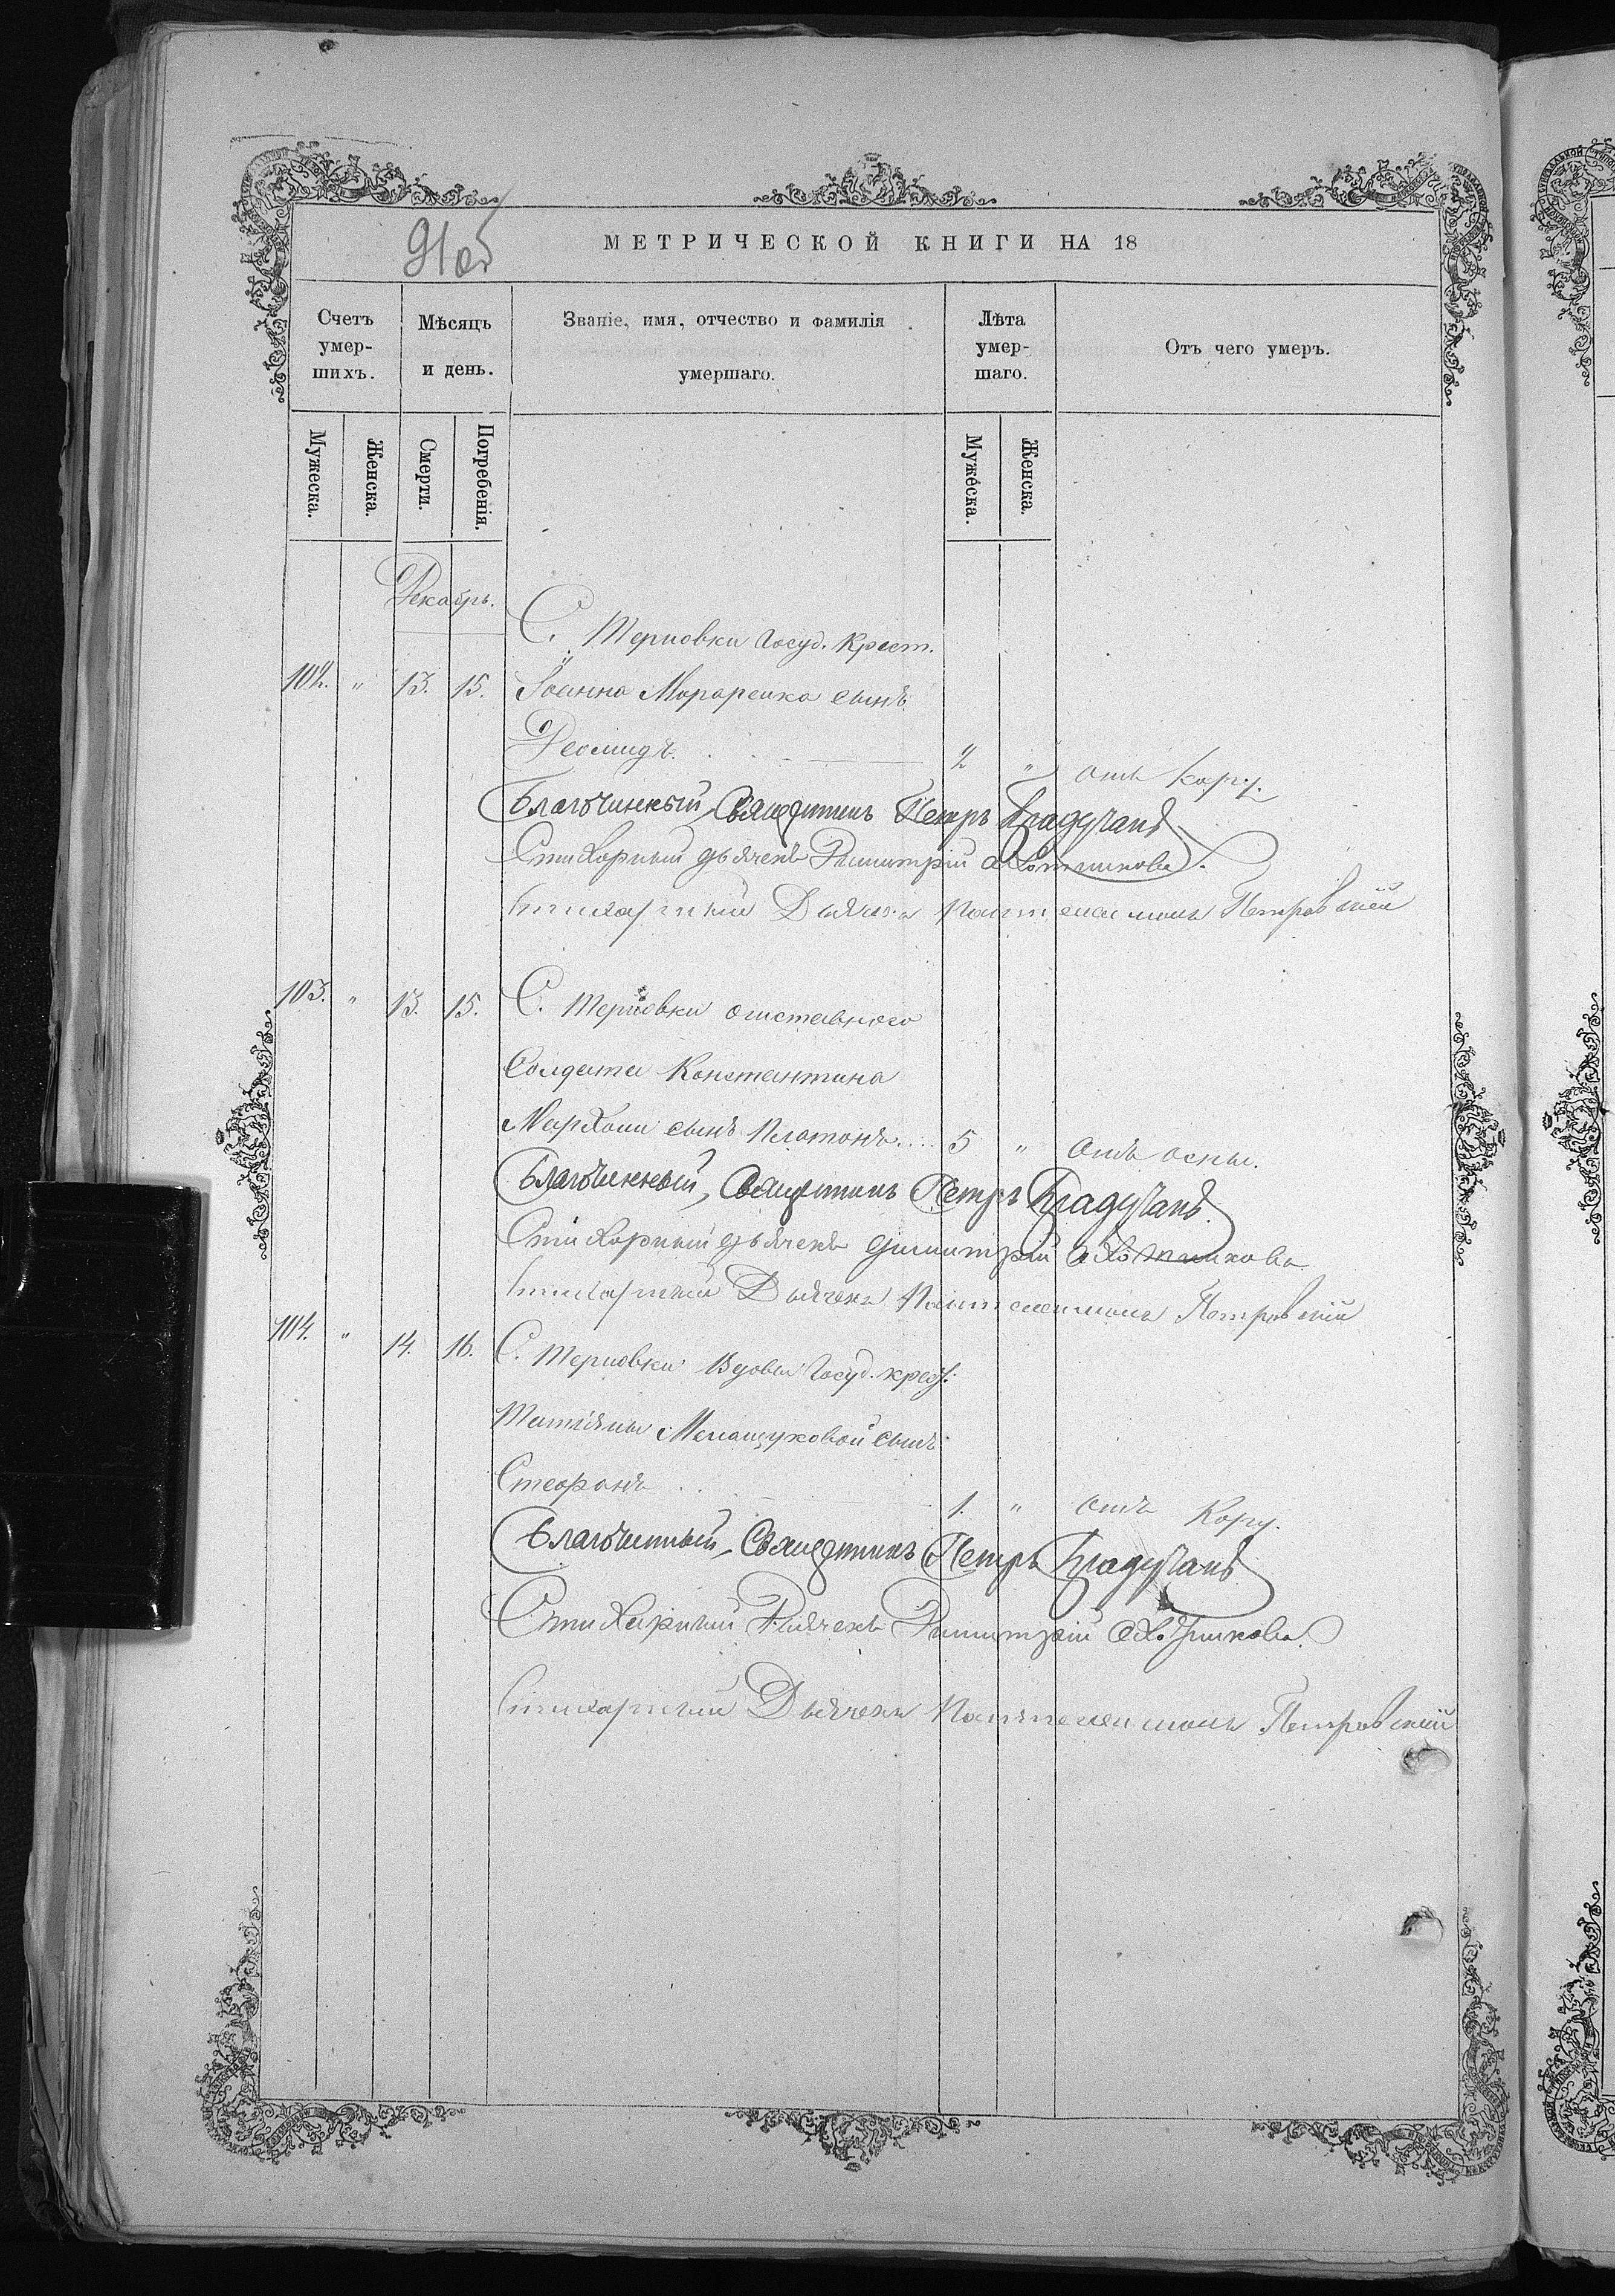 91об
МЕТРИЧЕСКОЙ КНИГИ НА 18
Счетъ умер-шихъ.
Мѣсяцъ и день.
Званіе, имя, отчество и фамилія умершаго.
Лѣта умер-шаго.
Отъ чего умеръ.
Мужеска.
Женска.
Смерти.
Погребенія.
Мужеска.
Женска.
Декабрь.
С. Терновки Госуд. Крест.
102. " 13. 15. Іоанна Мораренка сынъ
Деомидъ. 2 " отъ Кору.
Благочинный, Священникъ Петръ Брадучанъ
Стихарный дьячекъ Димитрій
Стихарный Дьячекъ Пантелеимонъ Петровскій
103. " 13. 15. С. Терновки отставного
Солдата Константина
сынъ Платонъ.... 5 " отъ оспы.
Благочинный, Священникъ Петръ Брадучанъ
Стихарный дьячекъ Димитрій
Стихарный Дьячекъ Пантелеимонъ Петровскій
104. " 14. 16. С. Терновки Вдовы Госуд. крес:
Татіяны Мелащуковой сынъ
Стефанъ 1. " отъ Кору.
Благочинный, Священникъ Петръ Брадучанъ
Стихарный Дьячекъ Димитрій
Стихарный Дьячекъ Пантелеимонъ Петровскій